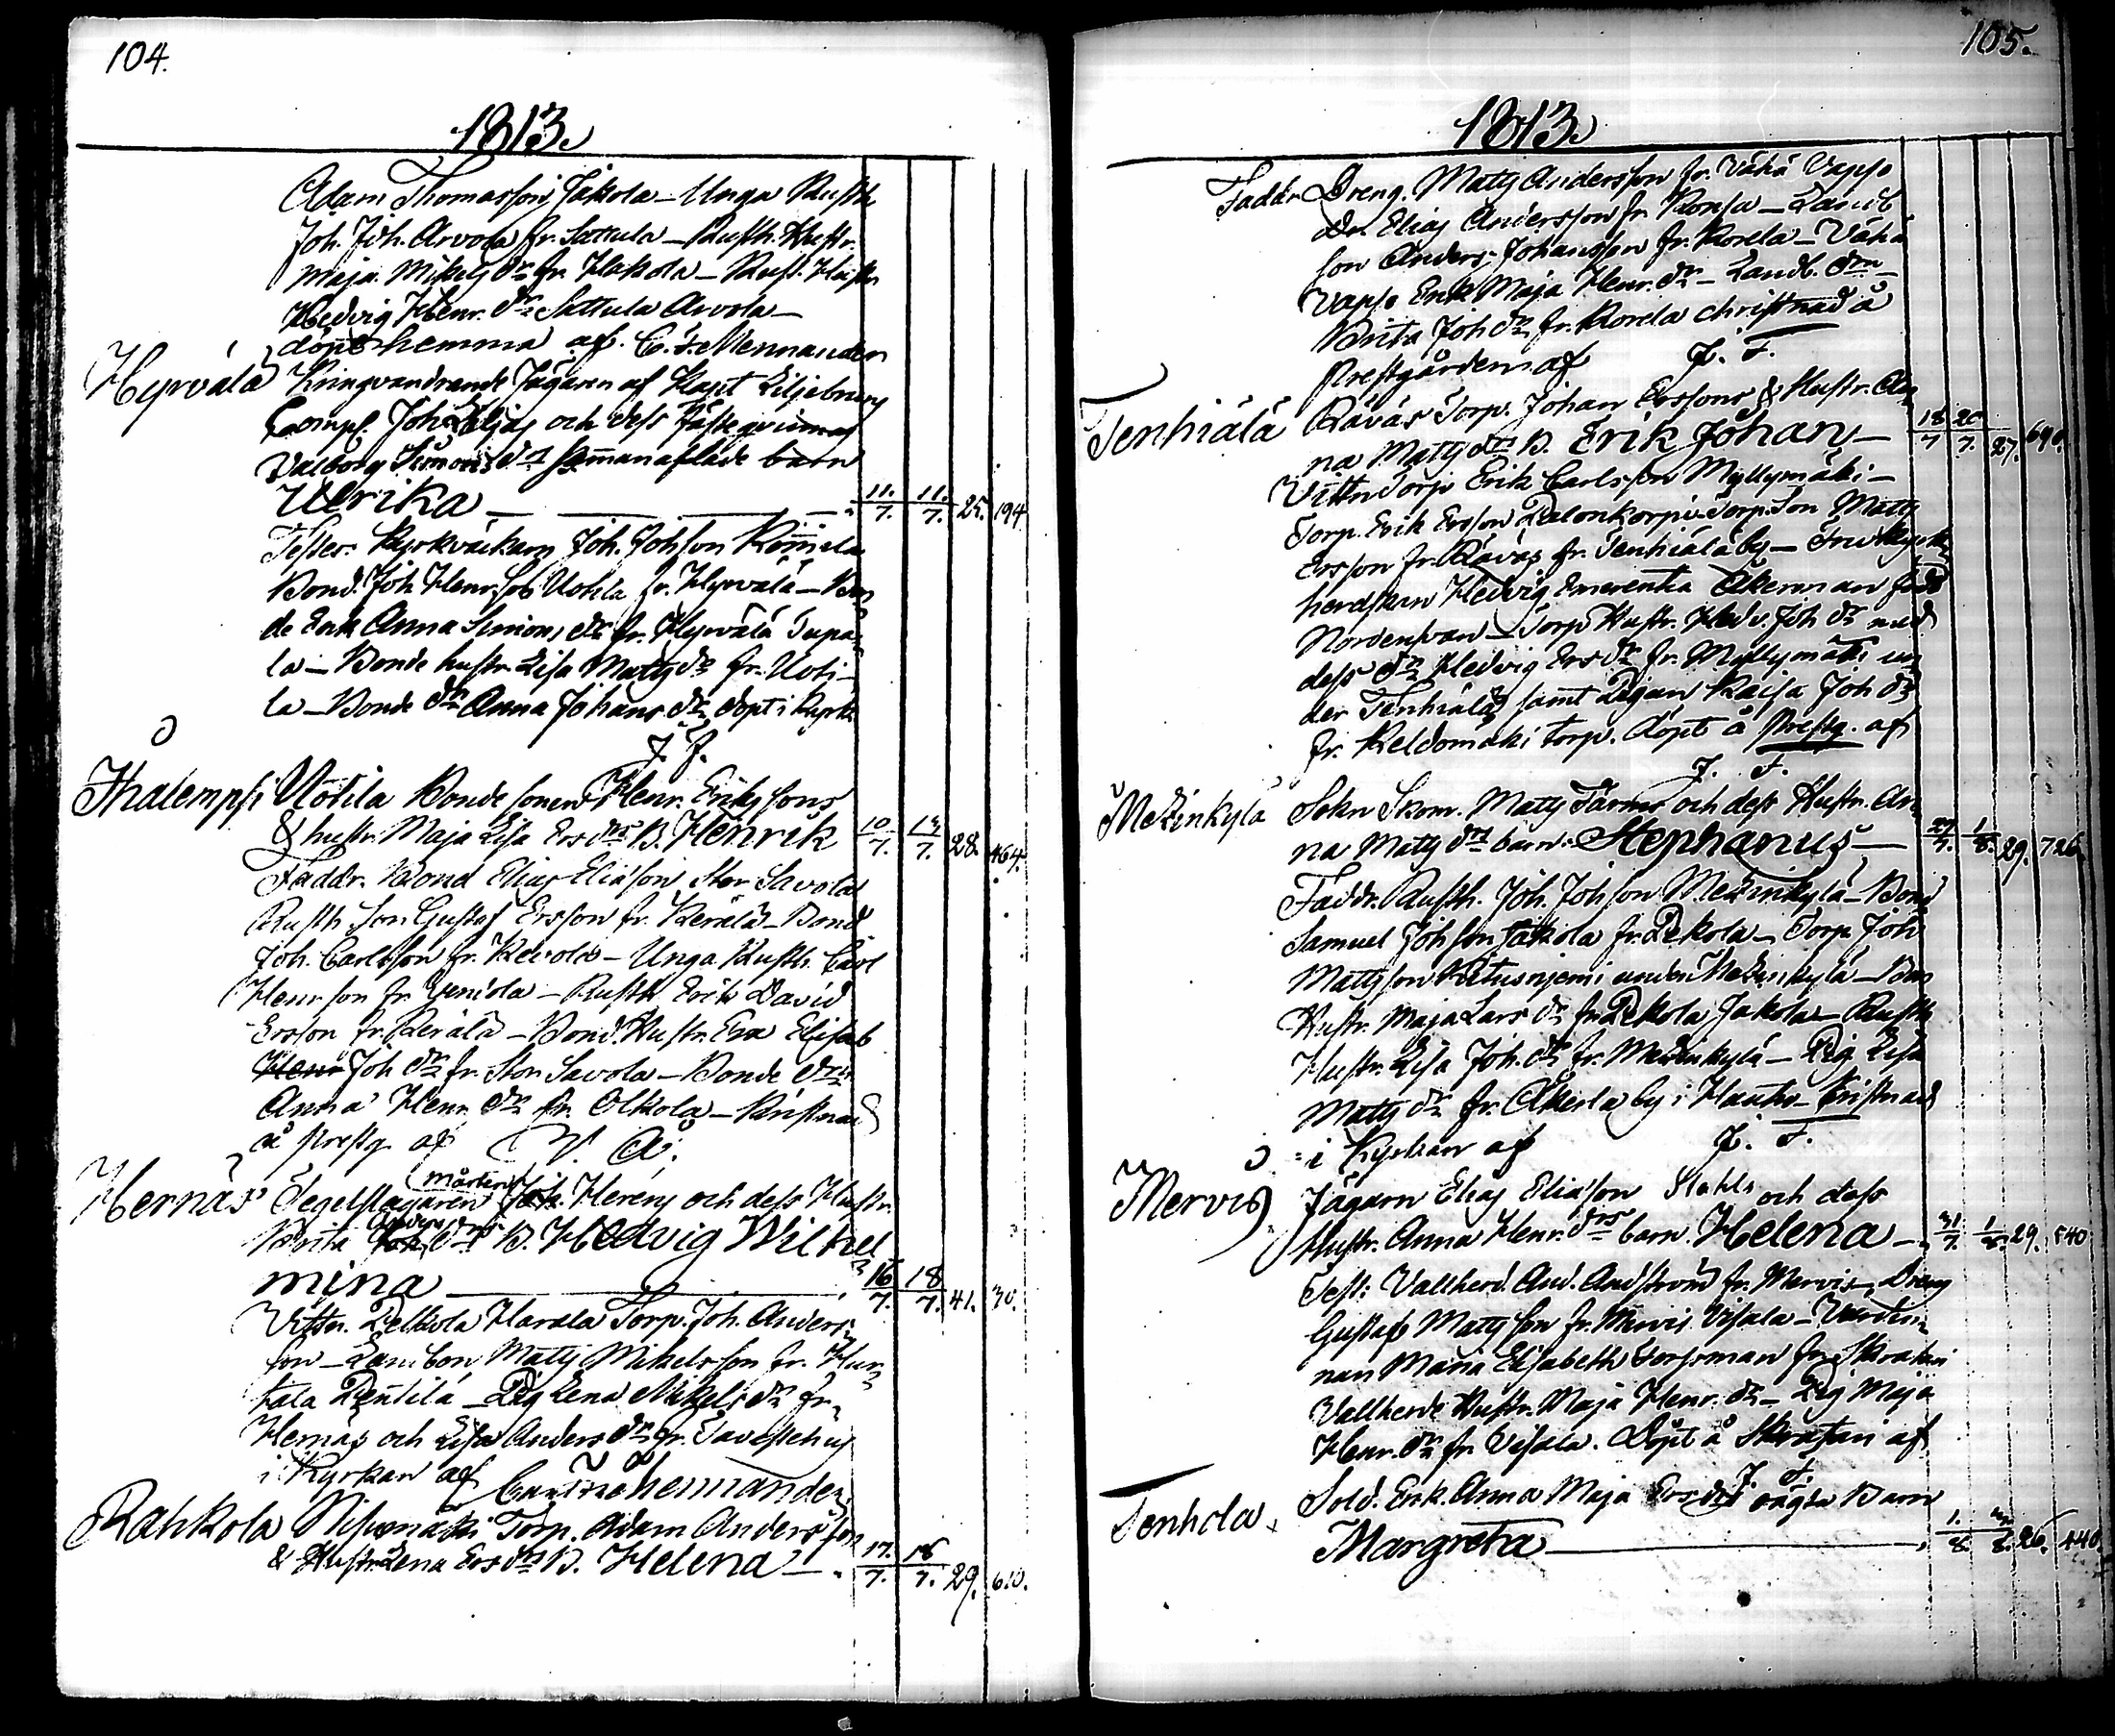 104.
1813.
Adam Thomasson, Jakola – Unga Rusth
Joh. Joh. Arvola fr. Sattula – Rusth. Hustr.
Maja Mikels dr fr. Hakola – Rust. Hustr
Hedvig Henr. dr Sattula Arvola –
döpt hemma af C. Mennander
Hyrvälä Kringvandrande Jägaren af Kapt Liljebrun
Comp. Joh Elias och dess fästeqvinnas
Valborg Simons dr sammanaflade barn
Ulrika — 11./7. 11./7. 25. 194
Testes: Kyrkväckarn Joh. Johson
Bond. Joh Henr. son Uotila fr. Hyrvälä – Bon
de Enk Anna Simons dr fr. Hyrvälä Tupa
la – Bonde hustr. Lisa Matts dr fr. Uoti-
la – Bonde dr Anna Johans dr döpt i kyrk.
J. F.
Ihalempsi Uotila Bonde sonen Henr. Eriks sons
& hustr. Maja Lisa Ers drs B. Henrik 10/7. 7. 28. 464.
Faddr. Bond Elias Eliasson Stor Savola
Rusth Son Gustaf Ersson fr. Kerälä – Bond
Joh. Carlsson fr. Kevola – Unga Rusth. Carl
Henrson fr. – Rusth Erik David
Ersson fr. Kerälä – Bond. Hustr. Eva Elisab
Henr Joh dr fr. Stor Savola – Bonde dr
Anna Henr. dr fr. Olkola – Kristnad
å prestg. af
Hernäs Tegelslagaren Mårten Joh. Herens och dess Hustr.
Brita Anders Joh drs B. Hedvig Wilhel
mina — 16/7. 18/7. 41. 30.
Vittn. Pelkola Harala Torp. Joh. Anders
son – Landbon Matts Mikelsson fr. Hur
tala Pentilä – Pig Lena Mikels dr fr.
Hernäs och Lisa Anders dr fr. Tavastehus
i Kyrkan af
Rahkola Torp. Adam Andersson
& Hustr. Lena Ers drs B. Helena — 17./7. 18/7. 29. 610.
105.
1813.
Faddr Dreng. Matts Andersson fr. Vähä Vapso
Dr. Elias Andersson fr. Konsa – Landb
son Anders Johansson fr. Korela – Vähä
Vapso Enk Maja Henr. dr – Landb. dr
Brita Joh dr fr. Korela christnad å
Prestgården af J. F.
Tenhiälä Rävas Torp. Johan Erssons & Hustr. An
na Matts drs B. Erik Johan — 18/7 20/7. 27. 690.
Vittn Torp Erik Carlsson Myllymäki –
Torp. Erik Ersson Torp. Son Matts
Ersson fr. Rävas fr. Tenhiälä by –
Hedvig Emerentia Åkerman född
Nordensvan – Torp Hustr. Hedv. Joh dr med
dess dr Hedvig Ers dr fr. Myllymäki un
der Tenhiälä samt Pigan Kaisa Joh dr
fr. Keldomäki torp. döpt å Prestg. af
J. F.
Metinkylä Sokn Skom. Matts Färm och dess Hustr. An
na Matts drs barn Stephanus — 1/8. 29. 726
Faddr. Rusth. Joh. Johson Metinkylä – Bond
Samuel Johson Jakola fr. Pekola – Torp Joh
Mattsson under Metinkylä – Bon
Hustr. Maja Lars dr fr. Pekola Jakola – Rusth
Hustr. Lisa Joh. dr fr. Metinkylä – Pig Lisa
Matts dr fr. Åkerla by i Hauho – Kristnad
i Kyrkan af J. F.
Mervis Jägarn Elias Eliasson Stahls och dess
Hustr. Anna Henr. drs barn. Helena — 31/7. 1/8. 29. 540
Test: Vallherd. And. Andström fr. Mervis – Dreng
Gustaf Mattsson fr. Mervis Visala – Värdin
nan Maria Elisabeth Forssman fr.
Vallherde Hustr. Maja Henr. dr – Pig Maja
Henr. dr fr. Visala. Döpt å af
J. F.
Tenhola Sold. Enk. Anna Maja Ers drs oägta Barn
Margreta — 1./8. 8. 26. 440.